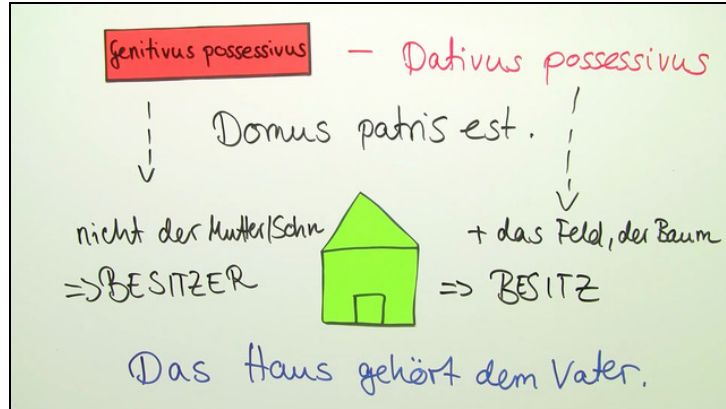 Genitivus possessivus – Dativus possessivus
Domus patris est.
nicht der Mutter/Sohn
+ das Feld, der Baum
=> BESITZER
=> BESITZ
Das Haus gehört dem Vater.